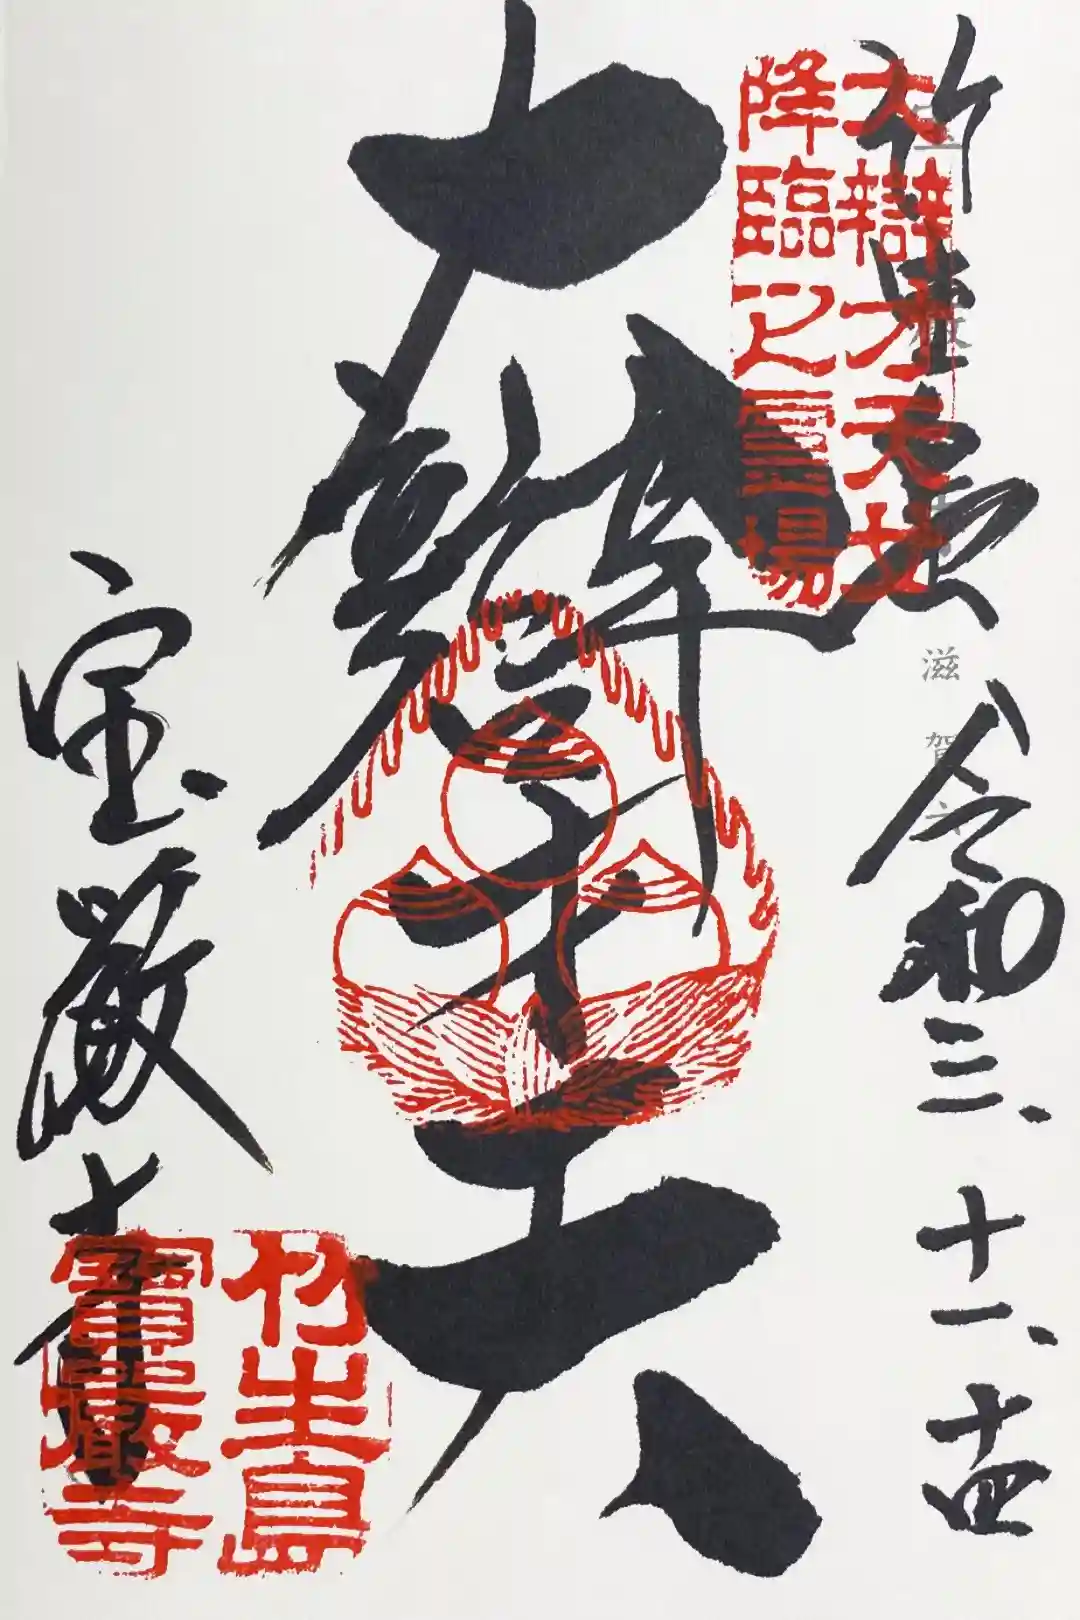 竹生島
令和三、十一、十四
大辯才天女
降臨之霊場
滋賀
大辯才天
宝厳寺
竹生島
寶嚴寺